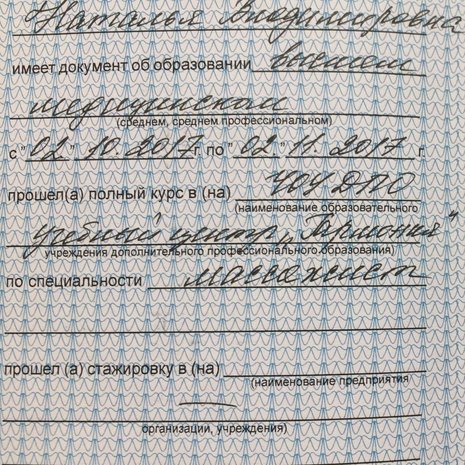 Наталья Владимировна
имеет документ об образовании высшем
медицинском
(среднем, среднем профессиональном)
с "02" 10. 2017 г. по "02" 11. 2017 г.
прошел(а) полный курс в (на) ЧОУ ДПО
(наименование образовательного
учебный центр „Гармония"
учреждения дополнительного профессионального образования)
по специальности массажист
прошел (а) стажировку в (на)
(наименование предприятия
—
организации, учреждения)